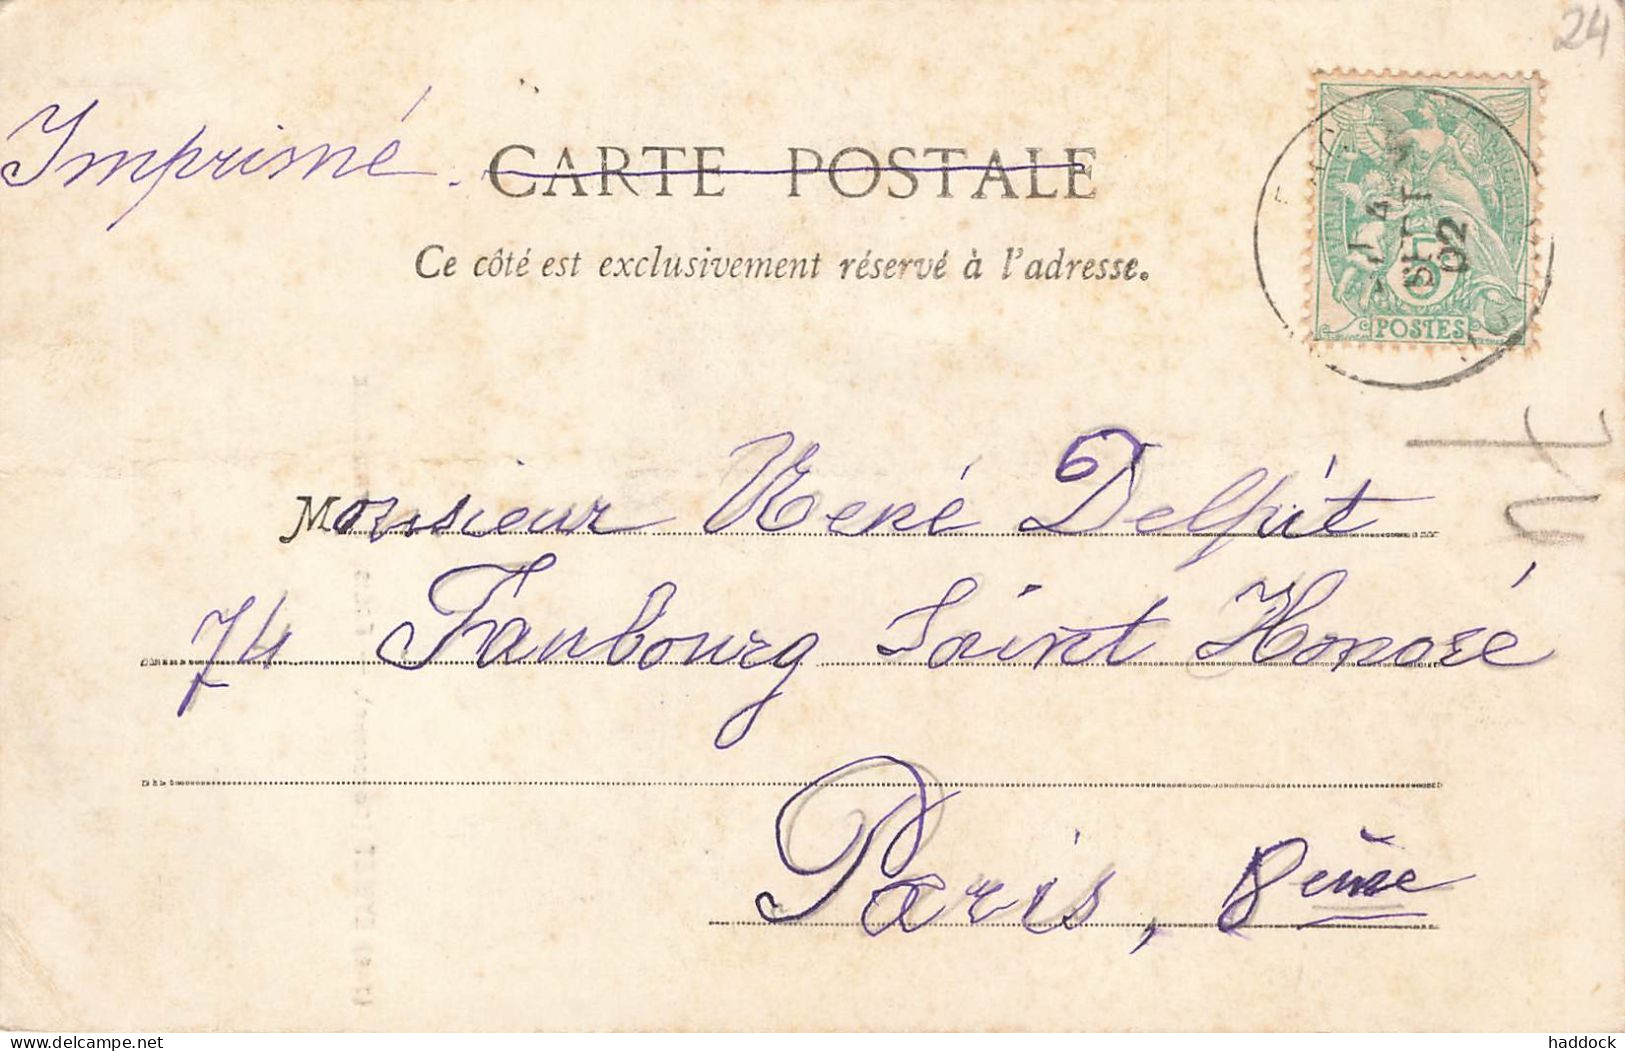 24
Imprimé.
CARTE POSTALE
Ce côté est exclusivement réservé à l'adresse.
SEPT
02
5
POSTES
Monsieur René Delpit
74 Faubourg Saint Honoré
Paris, 8ème
delcampe.net
haddock